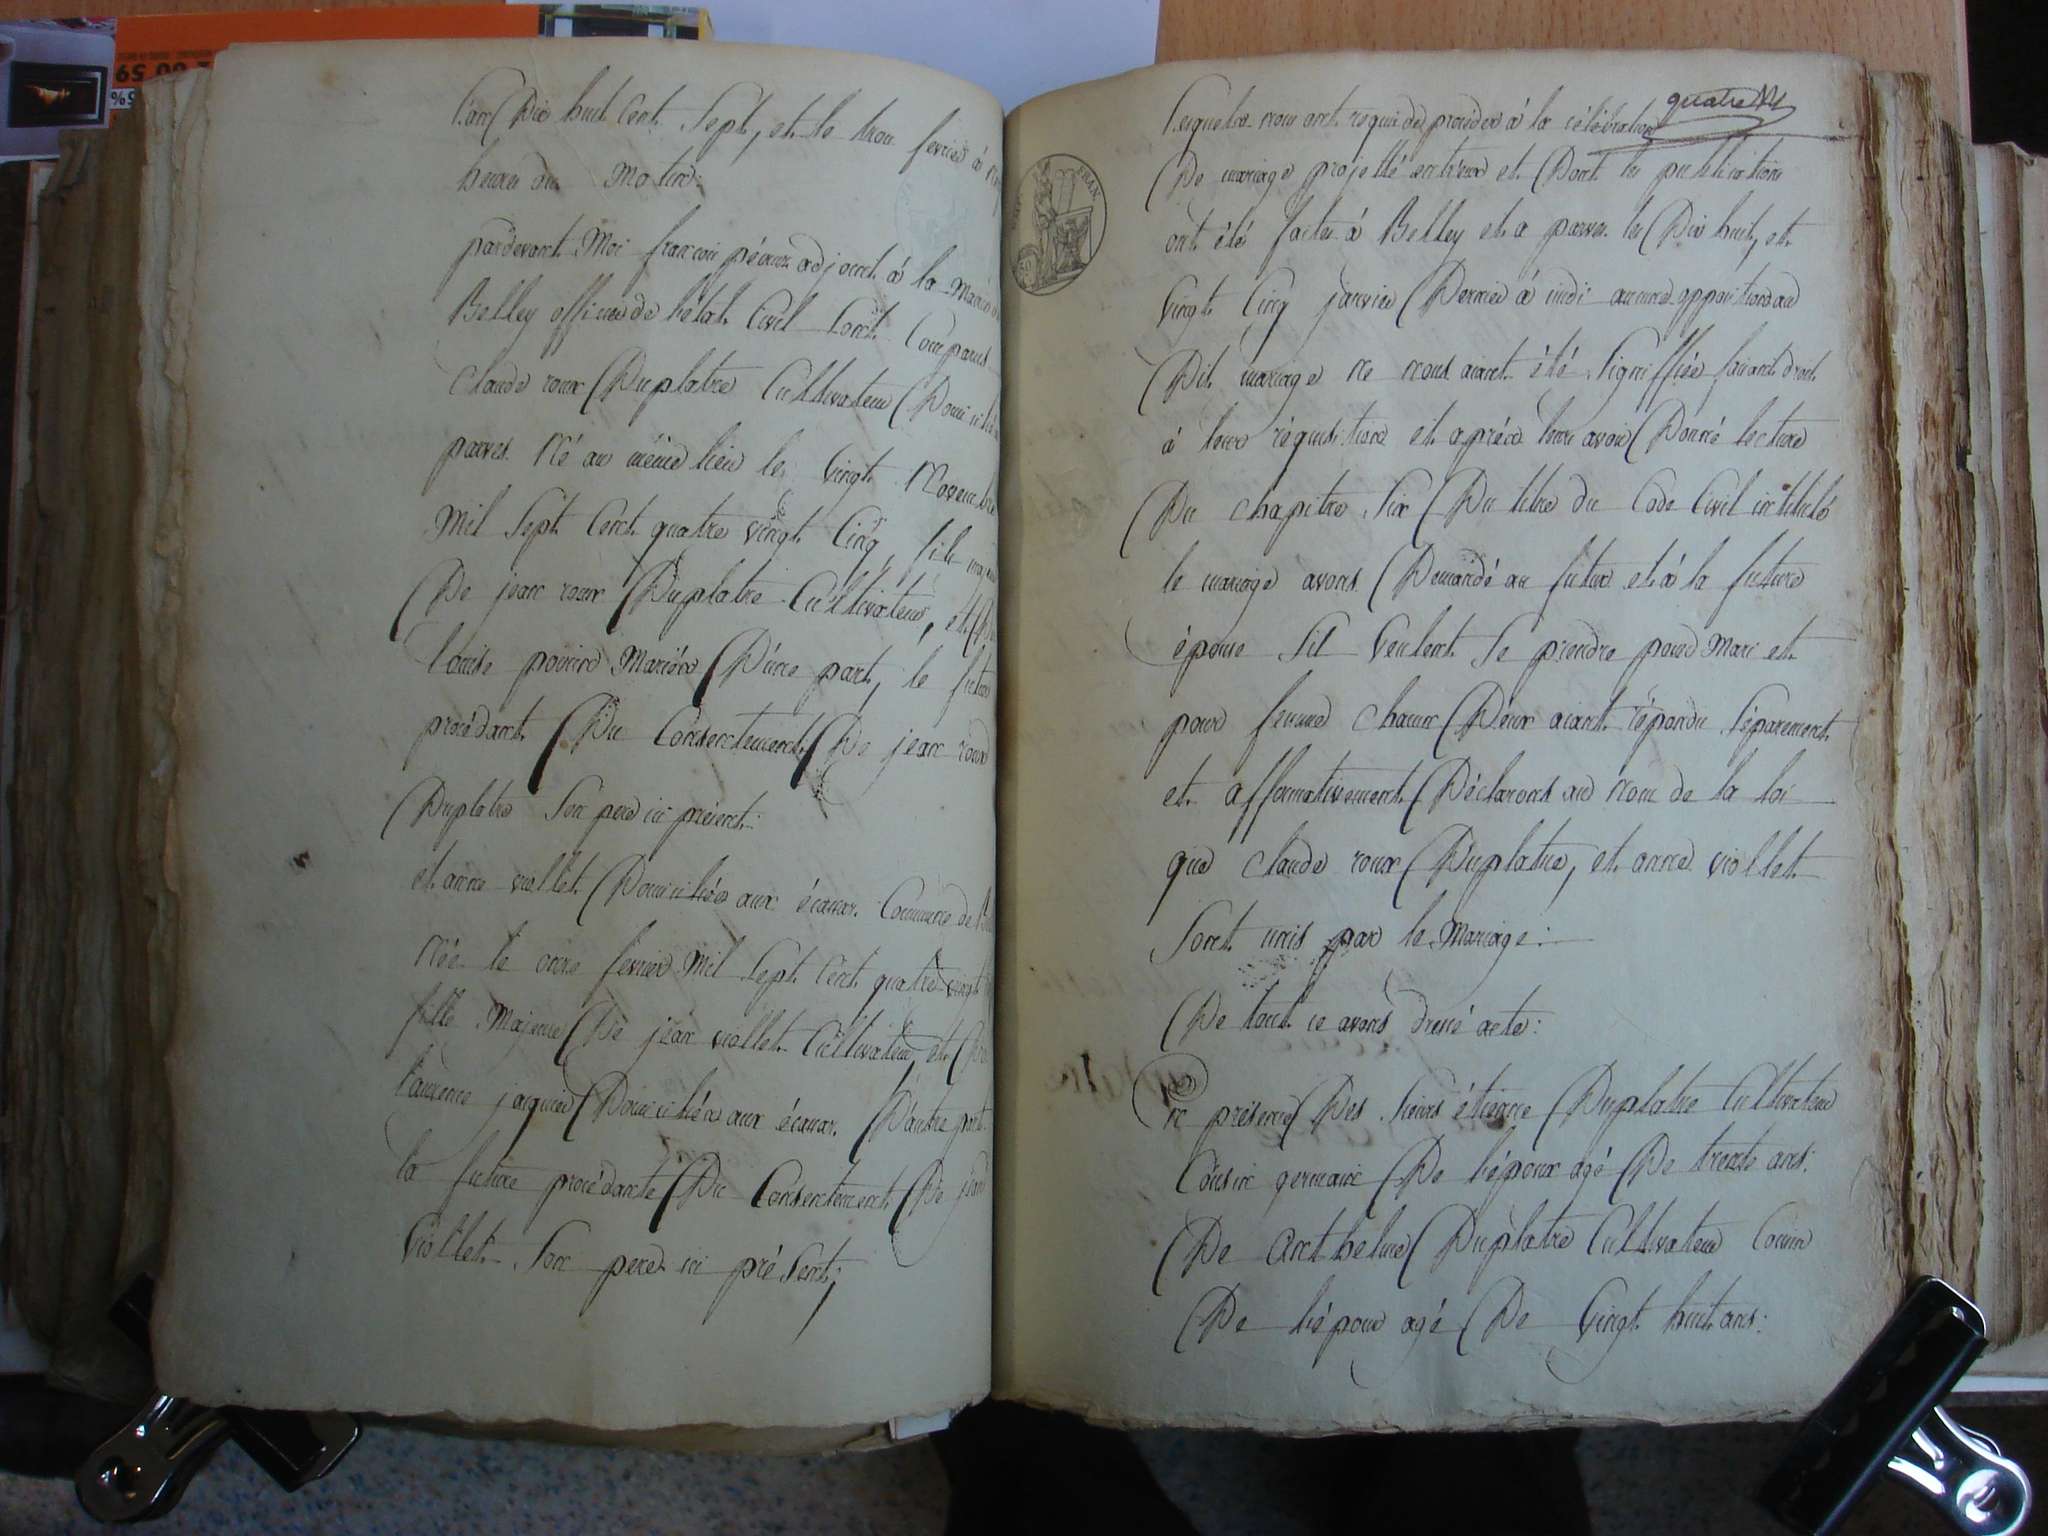 L'an Dix huit Cent Sept, et le trois fevrier à
heures du Matin:
pardevant Moi francois péaux adjoint à la Mairie de
Belley officier de l'état Civil Sont Comparus
Claude roux Duplatre Cultivateur Domicilié
parves Né au même lieu le Vingt Novembre
Mil Sept Cent quatre vingt Cinq, fils
De jean roux Duplatre Cultivateur, et
louise Mariéx D'une part, le futur
procédant Du Consentement De jean roux
Duplatre Son pere ici présent:
et anne viollet Domiciliée aux écassaz Commune de
Née le onze fevrier Mil Sept Cent quatre vingt
fille Majeure De jean viollet Cultivateur, et
laurence jaquier Domiciliéx aux écassaz D'autre part
la future procédante Du Consentement De jean
Viollet Son pere ici présent;
quatre
Lesquels nous ont requis de procéder à la célébration
De mariage projetté entr'eux et Dont les publications
ont été faites à Belley et a parves les Dix huit, et
Vingt Cinq janvier Dernier à midi aucune opposition au
Dit mariage ne nous aiant été Signiffiée, faisant droit
à leur réquisition et aprèx leur avoir Donné lecture
Du chapitre Six Du titre du Code Civil intitulé
le mariage avons Demandé au futur et à la future
épouse Sil Veulent Se prendre pour Mari et
pour femme chacun D'eux aiant répondu Séparement
et affirmativement Déclarons au Nom de la loi
que Claude roux Duplatre, et anne viollet
Sont unis par le Mariage:
De tout ce avons dressé acte:
En présence Des Sieurs étienne Duplatre Cultivateur
Cousin germain De l'époux agé De trente ans:
De Anthelme Duplatre Cultivateur Cousin
De l'époux agé De Vingt huit ans:
FRAN